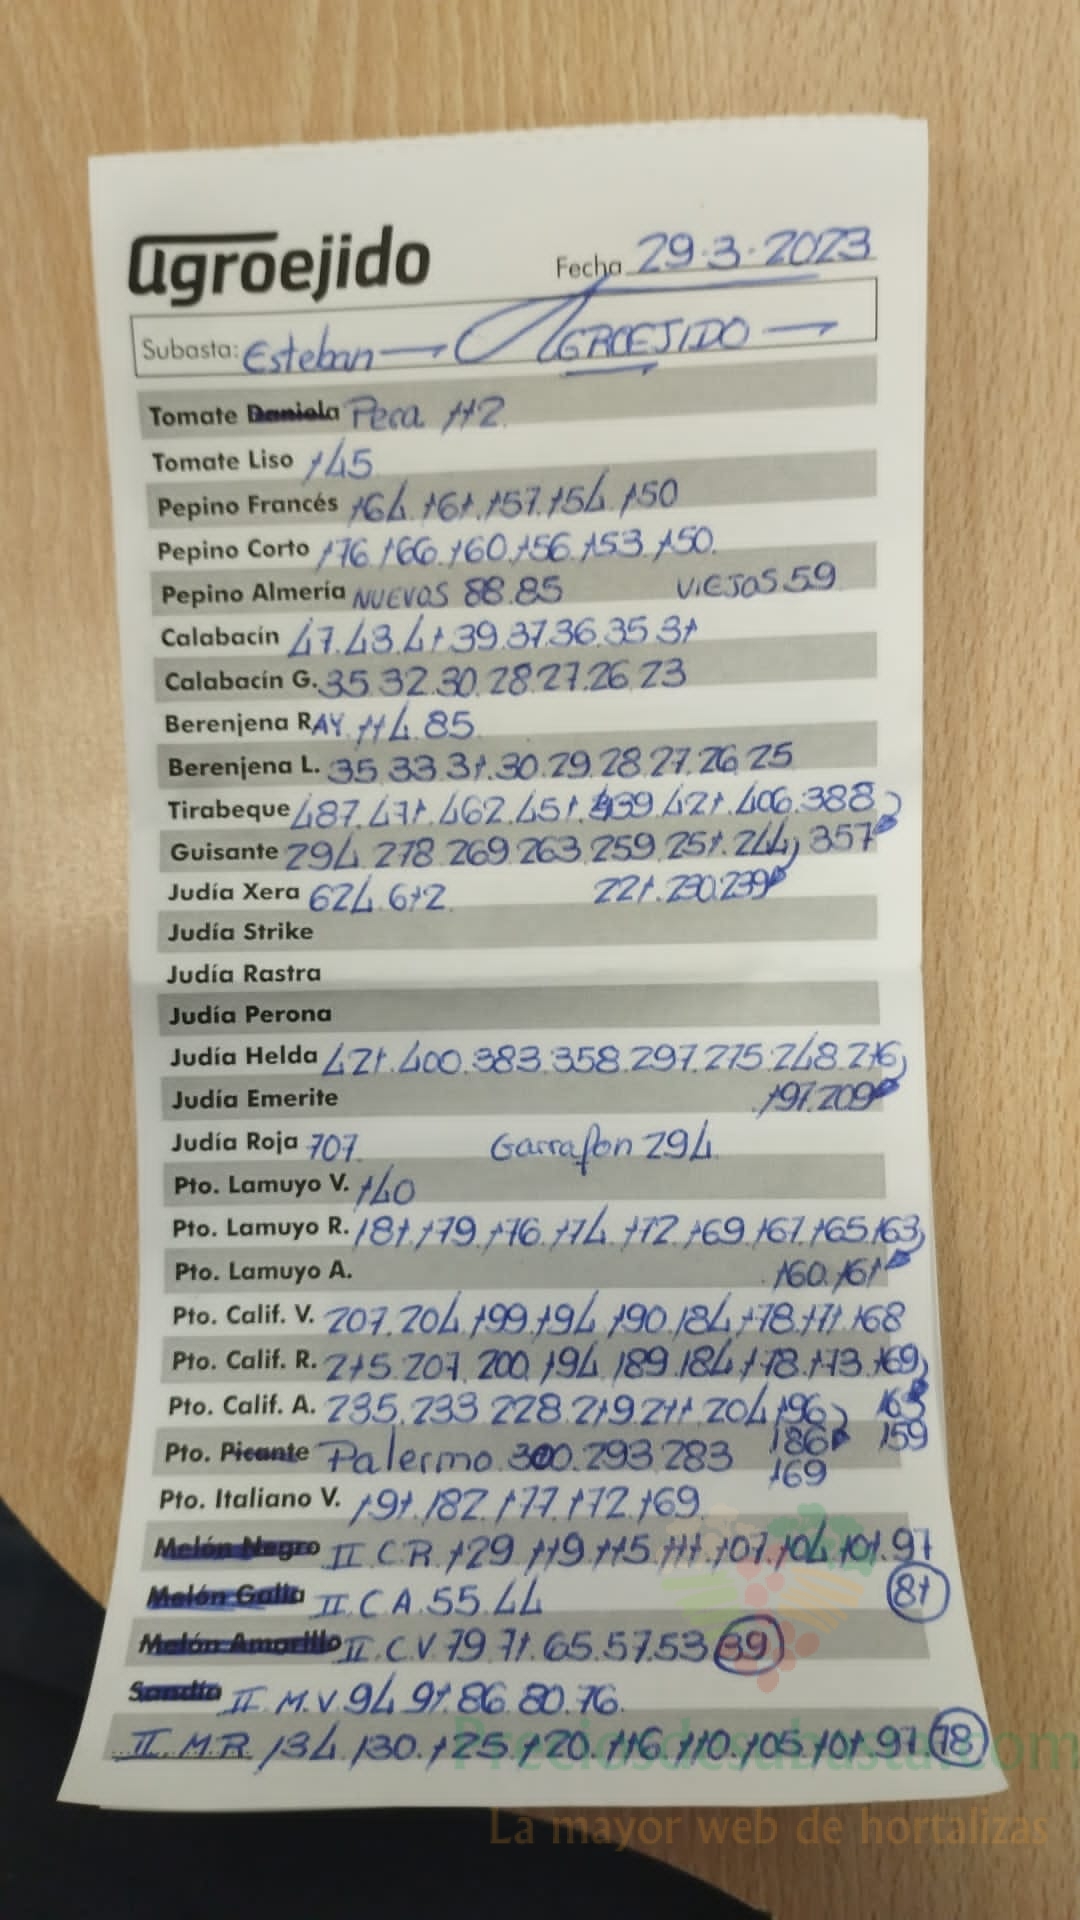 agroejido
Fecha 29.3.2023
Subasta: Esteban — AGROEJIDO —
Tomate Daniela Pera 112
Tomate Liso 145
Pepino Francés 164.161.157.154.150
Pepino Corto 176.166.160.156.153.150.
Pepino Almería NUEVOS 88.85 VIEJOS.59
Calabacín 47.43.41.39.37.36.35.31
Calabacín G. 35.32.30.28.27.26.23
Berenjena RAY. 114.85
Berenjena L. 35.33.31.30.29.28.27.26.25
Tirabeque 487.471.462.451.439.421.406.388
Guisante 294.278.269.263.259.251.244 357
Judía Xera 624.612 221.230.239
Judía Strike
Judía Rastra
Judía Perona
Judía Helda 421.400.383.358.297.275.248.216
Judía Emerite 197.209
Judía Roja 707 Garrafon 294
Pto. Lamuyo V. 140
Pto. Lamuyo R. 181.179.176.174.172.169.167.165.163
Pto. Lamuyo A. 160.161
Pto. Calif. V. 207.204.199.194.190.184.178.171.168
Pto. Calif. R. 215.207.200.194.189.184.178.173.169
Pto. Calif. A. 235.233.228.219.211.204.196 163
Pto. Picante Palermo 300.293.283 186 159
169
Pto. Italiano V. 191.182.177.172.169
Melón Negro II C.R. 129.119.115.111.107.104.101.97
81
Melón Galia II.C.A.55.44
Melón Amarillo II.C.V.79.71.65.57.53.39
Sandía II.M.V.94.91.86.80.76.
II.M.R. 134.130.125.120.116.110.105.101.97.78
Preciosdesubasta.com
La mayor web de hortalizas